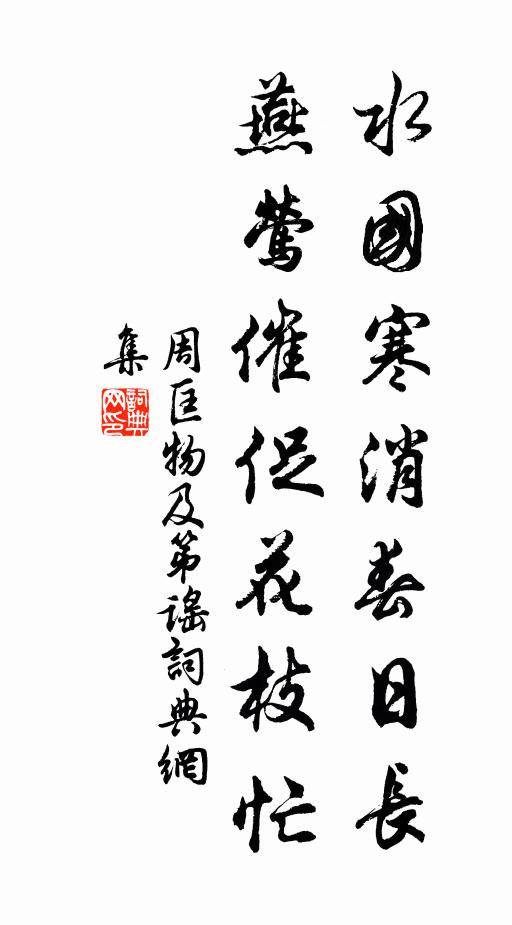 水國寒消春日長
燕鶯催促花枝忙
周匡物及第謠詞典網
集
詞典網印